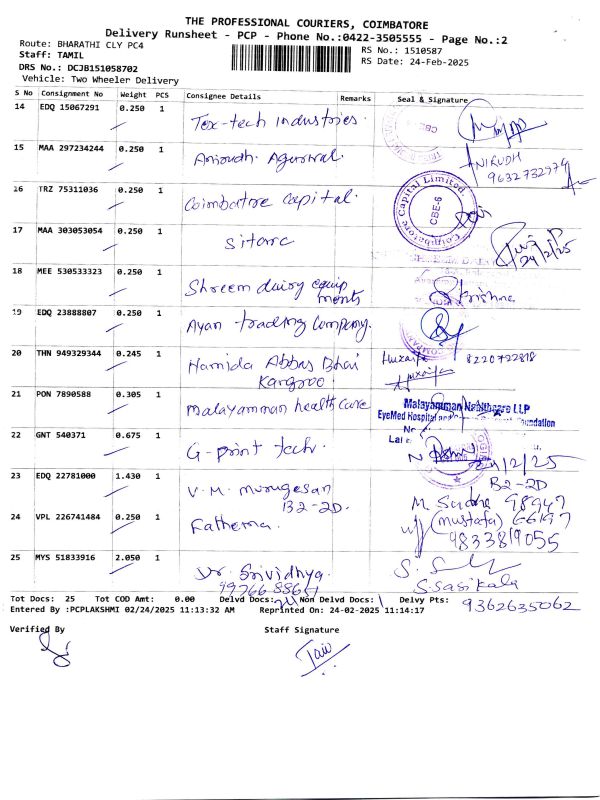 THE PROFESSIONAL COURIERS, COIMBATORE
Delivery Runsheet - PCP - Phone No.:0422-3505555 - Page No.:2
Route: BHARATHI CLY PC4
RS No.: 1510587
Staff: TAMIL
RS Date: 24-Feb-2025
DRS No.: DCJB151058702
Vehicle: Two Wheeler Delivery
S No Consignment No Weight PCS Consignee Details Remarks Seal & Signature
14 EDQ 15067291 0.250 1 Tex-tech industries.
15 MAA 297234244 0.250 1 Anirudh. Agarwal. ANIRUDH
9632732979
16 TRZ 75311036 0.250 1 Coimbatore capital. Coimbatore Capital Limited. CBE-6
17 MAA 303053054 0.250 1 Sitara 24/2/25
18 MEE 530533323 0.250 1 Shreem dairy equip
ments Krishna
19 EDQ 23888807 0.250 1 Ayan trading company.
20 THN 949329344 0.245 1 Hamida Abbas Bhai Huzaifa 8220722818
Kangroo
21 PON 7890588 0.305 1 malayamman health care Malayamman Healthcare LLP
EyeMed Hospital and Foundation
22 GNT 540371 0.675 1 G-print tech.
24/2/25
23 EDQ 22781000 1.430 1 V.M. murugesan B2-2D
B2-2D. M. Sudha 98947
24 VPL 226741484 0.250 1 Fathema. (mustafa) 66197
9833819055
25 MYS 51833916 2.050 1 Dr. Srividhya. S.
9976688641 S. Sasikala
Tot Docs: 25 Tot COD Amt: 0.00 Delvd Docs: 24 Non Delvd Docs: 1 Delvy Pts: 9362635062
Entered By :PCPLAKSHMI 02/24/2025 11:13:32 AM Reprinted On: 24-02-2025 11:14:17
Verified By Staff Signature